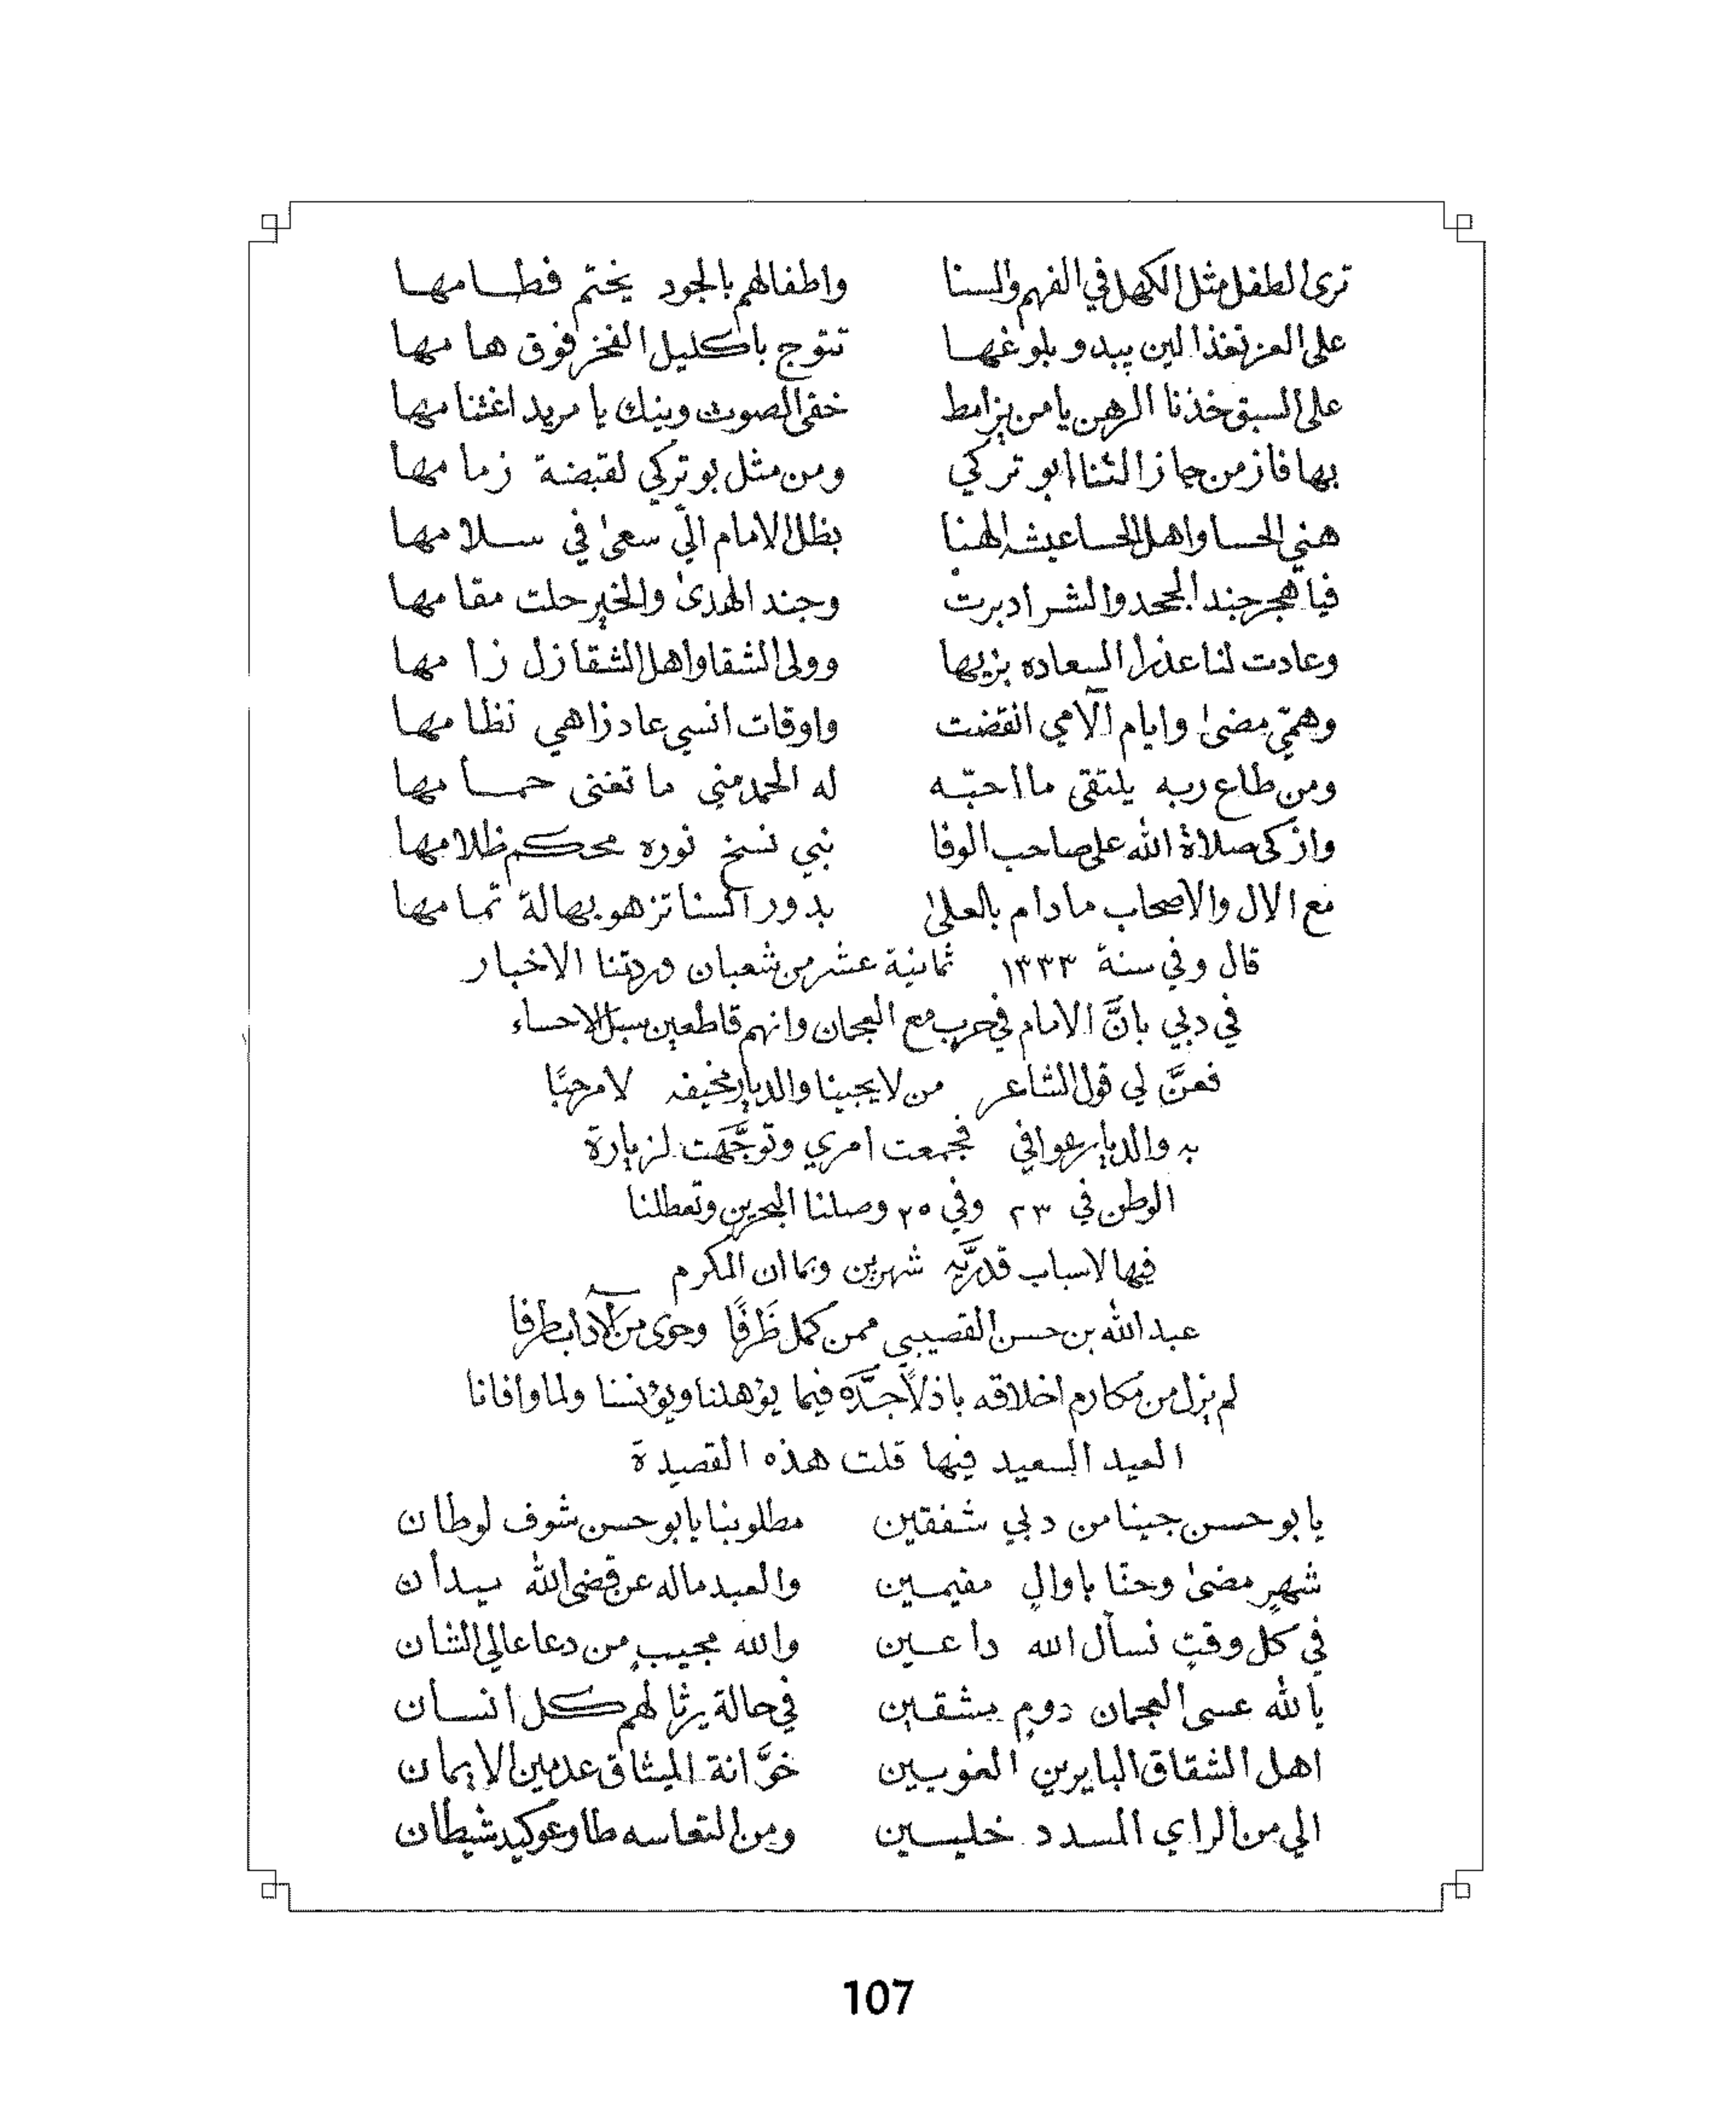 ترى الطفل مثل الكهل في الفهم والسنا واطفالهم بالجود يختم فطامها
على العز تغذا لين يبدو بلوغها تتوج باكليل الفخر فوق هامها
على السبق خذنا الرهن يا من يزامط خفي الصوت وينك يا مريد اغتنامها
بها فاز من جاز الثنا ابو تركي ومن مثل بو تركي لقبضة زمامها
هني الحسا واهل الحسا عيشة الهنا بظل الامام الّي سعى في سلامها
فيا هجر جند الجحد والشر ادبرت وجند الهدى والخير حلت مقامها
وعادت لنا عذرا السعاده بزيها وولى الشقا واهل الشقا زل زامها
وهمّي مضى وايام آلامي انقضت واوقات انسي عاد زاهي نظامها
ومن طاع ربه يلتقي ما احبّه له الحمد مني ما تغنى حمامها
وازكى صلاة الله على صاحب الوفا نبي نسخ نوره محكم ظلامها
مع الال والاصحاب ما دام بالعلى بدور السنا تزهو بهالة تمامها
قال وفي سنة ١٣٣٣ ثمانية عشر من شعبان وردتنا الاخبار
في دبي بانَّ الامام في حرب مع العجمان وانهم قاطعين سبل الاحساء
فعنَّ لي قول الشاعر من لا يجينا والديار مخيفه لا مرحبًا
به والديار عوافي فجمعت امري وتوجَّهت لزيارة
الوطن في ٢٣ وفي ٢٥ وصلنا البحرين وتعطلنا
فيها لاسباب قدريَّه شهرين وبما ان المكرم
عبد الله بن حسن القصيبي ممن كمل ظَرفًا وحوى من الآداب طرفا
لم يزل من مكارم اخلاقه باذلاً جدَّه فيما يؤهلنا ويؤنسنا ولما وافانا
العيد السعيد فيها قلت هذه القصيدة
يا بو حسن جينا من دبي شفقين مطلوبنا يا بو حسن شوف لوطان
شهرٍ مضى وحنّا باوالٍ مقيمين والعبد ماله عن قضى الله بيدان
في كل وقتٍ نسأل الله داعين والله مجيبٍ من دعا عالي الشان
يالله عسى العجمان دومٍ بشقين في حالة يرثا لهم كل انسان
اهل الشقاق البايرين الغويين خوَّانة الميثاق عدمين الايمان
الي من الراي المسدد خليسين ومن التعاسه طاوعو كيد شيطان
107